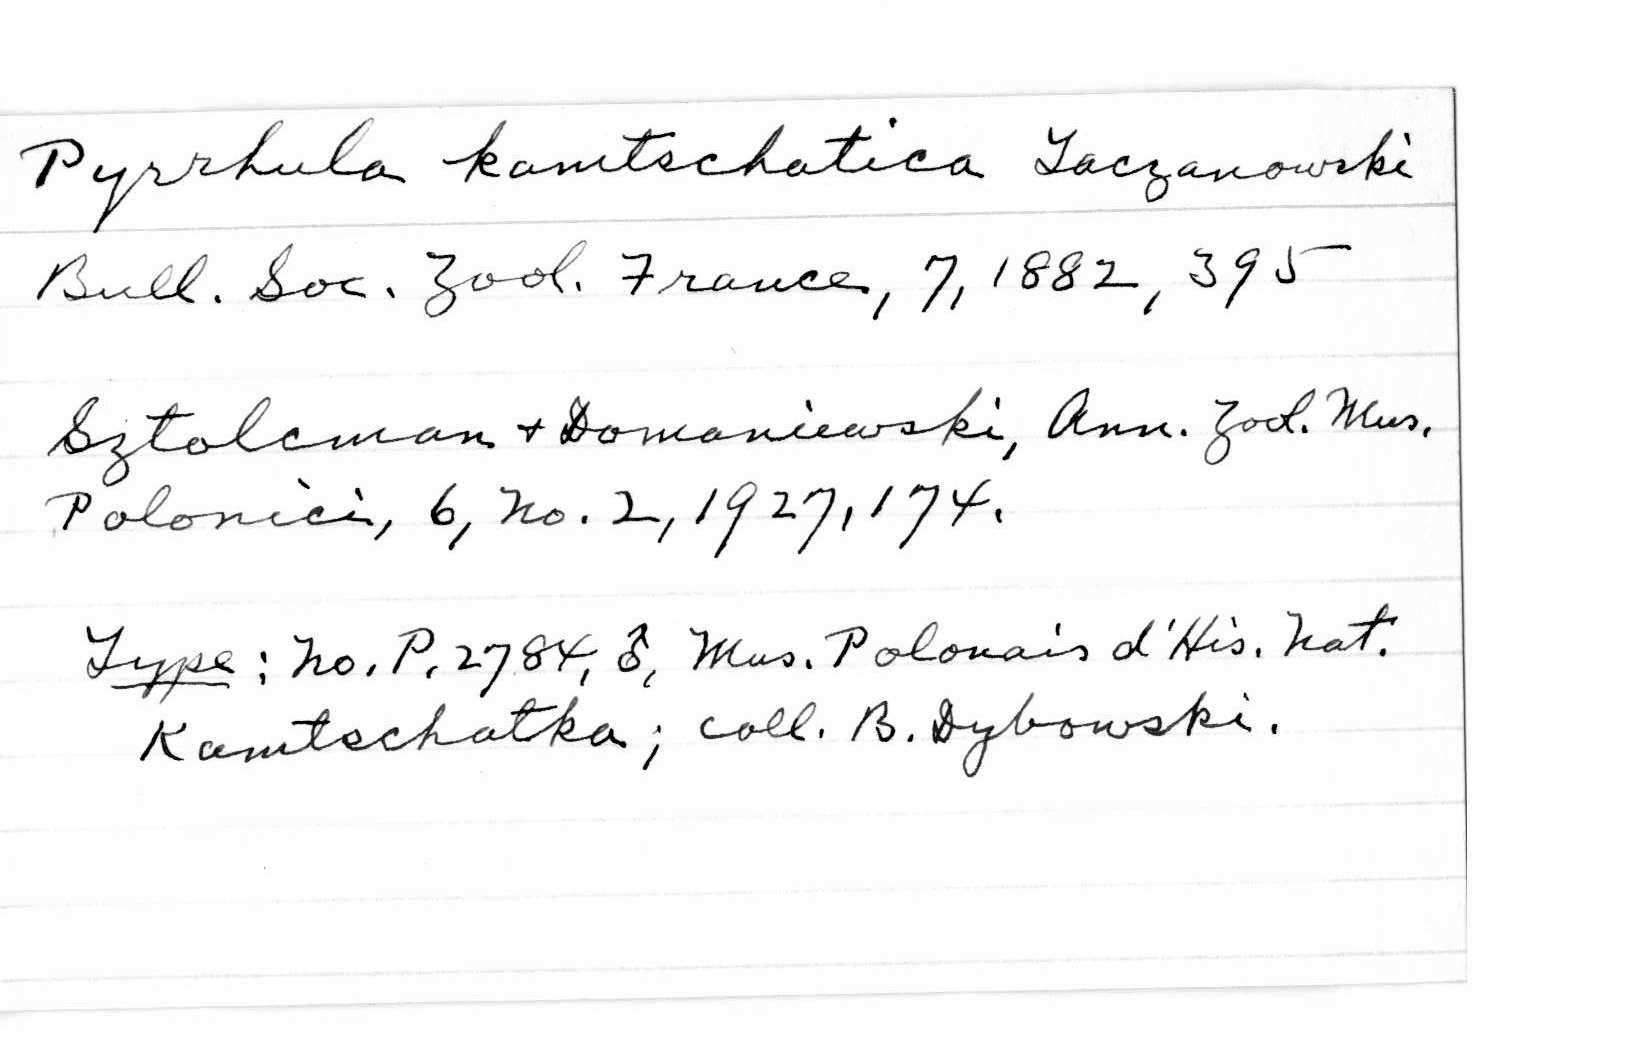 Pyrrhula kamtschatica Taczanowski
Bull. Soc. Zool. France, 7, 1882, 395
Sztolcman + Domaniewski, Ann. Zool. Mus.
Polonici, 6, No. 2, 1927, 174.
Type: No. P. 2784, ♂, Mus. Polonais d'His. Nat.
Kamtschatka; coll. B. Dybowski.